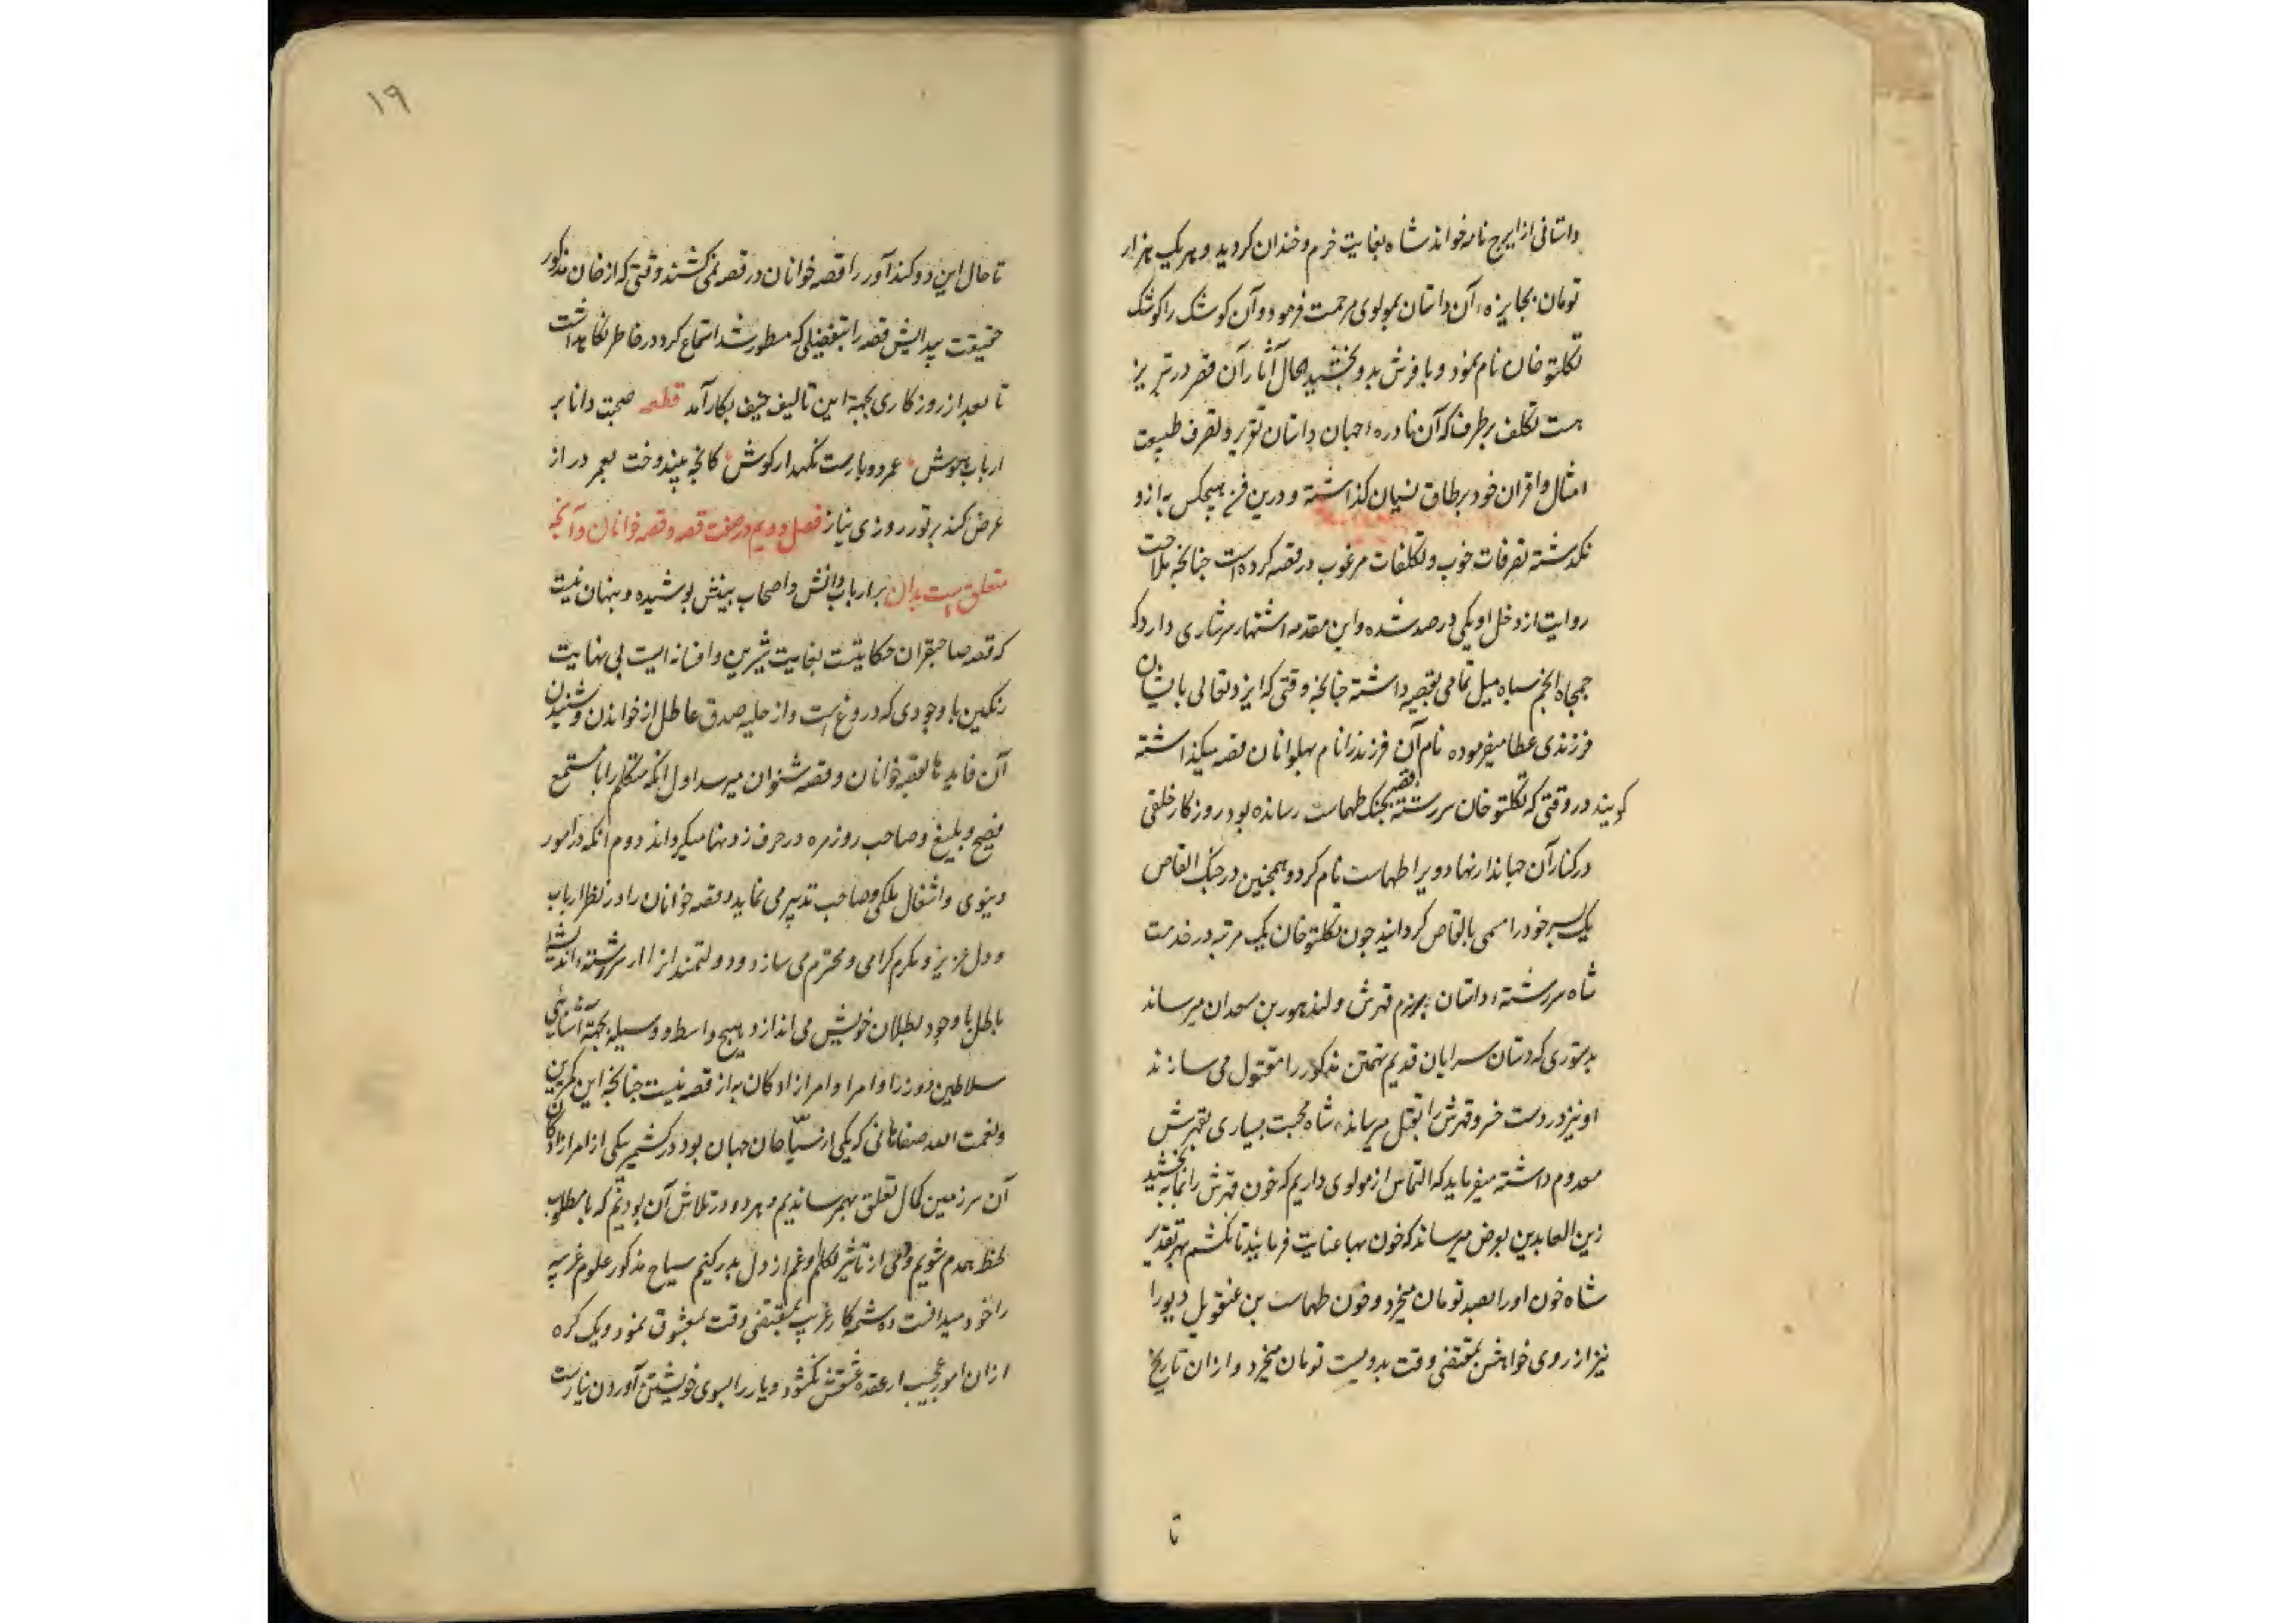 داستانی از ایرج نامه خواند شاه بغایت خرم و خندان کردید و مبریک هزار
تومان بجایزهٔ آن داستان بمولوی مرحمت فرمود و آن کوشک را کوشک
تکلتو خان نام نمود و با فرش بدو بخشید حال آثار آن قصر در تبریز
هست تکلف برطرف که آن نادرهٔ جهان داستان تقریر و تصرف طبیعت
امثال و اقران خود بر طاق نسیان کذاشته و درین فن هیچکس به ازو
نکذشته تصرفات خوب و تکلفات مرغوب در قصه کرده است چنانچه ملاحت
روایت از دخل او یکی در صد شده و این مقدمه اشتهار سرشاری دارد که
جمجاه انجم سپاه میل تمامی بقصه داشته چنانچه وقتی که ایزد تعالی بایشان
فرزندی عطا میفرموده نام آن فرزند را نام پهلوانان قصه میکذاشته
کویند در وقتی که تکلتو خان سررشتهٔ قصه بجنک طهماست رسانده بود روزکار خلفی
در کنار آن جهاندار نهاد و ویرا طهماست نام کرد و همچنین در جنک القاص
یک پسر خود را مسمی بالقاص کردانید چون تکلتو خان یک مرتبه در خدمت
شاه سررشتهٔ داستان برزم قهرش و لندهور بن سعدان میرساند
بدستوری که دستان سرایان قدیم تهمتن مذکور را مقتول می سازند
او نیز در دست خسرو قهرش را بقتل میرساند شاه محبت بسیاری بقهرش
معدوم داشته میفرماید که التماس از مولوی داریم که خون قهرش را بما بخشید
زین العابدین بعرض میرساند که خون بها عنایت فرمایید تا نکشم بهر تقدیر
شاه خون او را بصد تومان میخرد و خون طهماست بن عنقویل دیو را
نیز از روی خواهش بمقتضی وقت بدویست تومان میخرد و از ان تاریخ
تا
۱۹
تا حال این دو کندآور را قصه خوانان در قصه نمی کشند وقتی که از خان مذکور
حقیقت پیدایش قصه را بتفضیلی که مسطور شد استماع کرد در خاطر نکاهداشت
تا بعد از روزکاری بجهة این تالیف حنیف بکار آمد قطعه صحبت دانا بر
ارباب هوش عمر دوبارست نکهدار کوش کانچه بیندوخت بعمر دراز
عرض کند بر تو بروزی نیاز فصل دویم در صفت قصه و قصه خوانان و آنچه
متعلق است بدان بر ارباب دانش و اصحاب بینش پوشیده و پنهان نیست
که قصه صاحبقران حکایتیست بغایت شیرین و افسانه ایست بی نهایت
رنکین با وجودی که دروغ است و از حلیه صدق عاطل از خواندن و شنیدن
آن فایدها بقصه خوانان و قصه شنوان میرسد اول انکه متکلم را با مستمع
فصیح و بلیغ و صاحب روزمره در حرف زدنها میکرداند دوم انکه در امور
دنیوی و اشغال ملکی صاحب تدبیر می نماید و قصه خوانان را در نظر ارباب
دول عزیز و مکرم کرامی و محترم می سازد و دولتمند انرا از سررشتهٔ اندیشهای
باطل با وجود بطلان خویش می اندازد و هیچ واسطه و وسیله بجهة آشنایی
سلاطین و وزرا و امرا و امرازادکان به از قصه نیست چنانچه این کمترین
و نعمت الله صفاهانی که یکی از سیاحان جهان بود در کشمیر بیکی از امرازادکان
آن سرزمین کمال تعلق بهمرساندیم و هر دو در تلاش آن بودیم که با مطلوب
لحظه همدم شویم و دمی از تاثیر تکلم او غم از دل بدر کنیم سیاح مذکور علوم غریبه
را خود میدانست و شمهٔ کار غریب بمقتضی وقت بمعشوق نمود و یک کره
از ان امور عجیب از عقده عشقش نکشود و یار را بسوی خویشتن آوردن نیارست